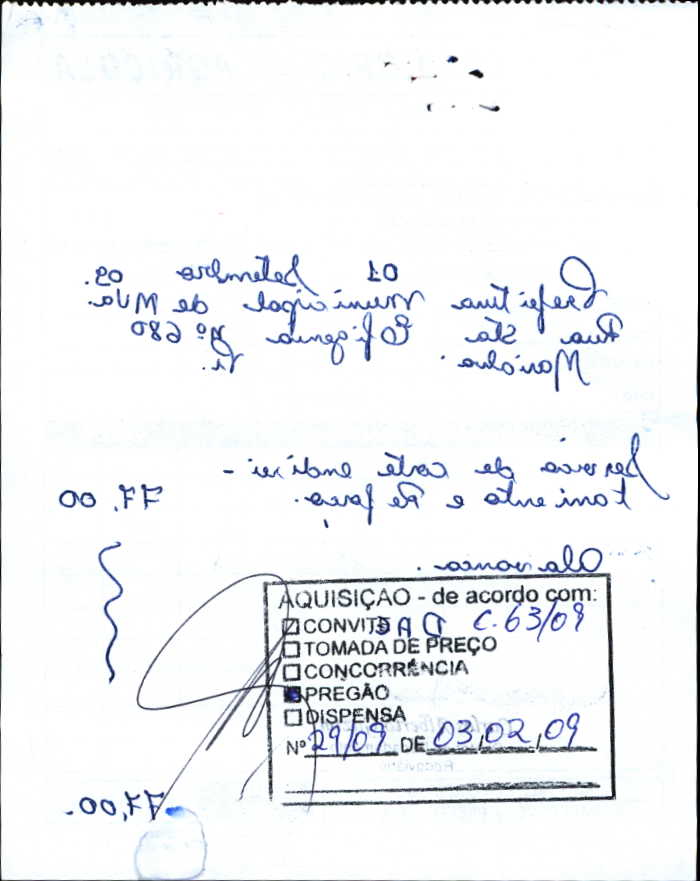 01 Setembro 09.
Prefeitura Municipal de MVa.
Rua Sta Efigenia nº 680
Mariana.
Serviço de corte endirei-
tamento e Re forço. 77,00
Alavanca.
AQUISIÇÃO - de acordo com:
CONVITE C.63/09
TOMADA DE PREÇO
CONCORRÊNCIA
PREGÃO
DISPENSA
Nº 29/09 DE 03,02,09
77,00.